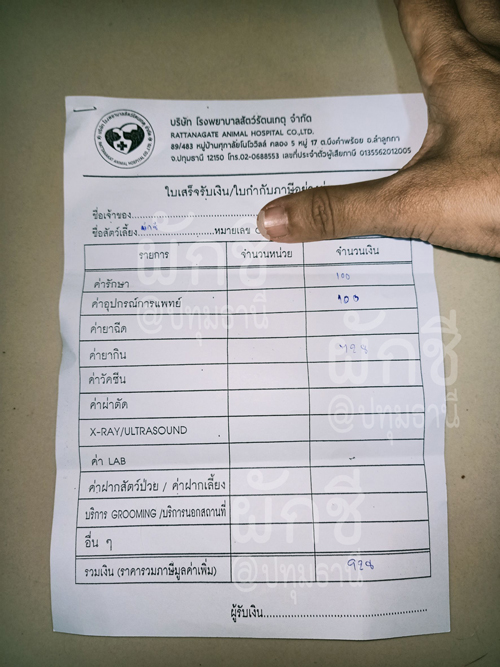 บริษัท โรงพยาบาลสัตว์รัตนเกตุ จำกัด
RATTANAGATE ANIMAL HOSPITAL CO.,LTD.
89/483 หมู่บ้านศุภาลัยโนโววิลล์ คลอง 5 หมู่ 17 ต.บึงคำพร้อย อ.ลำลูกกา
จ.ปทุมธานี 12150 โทร.02-0688553 เลขที่ประจำตัวผู้เสียภาษี 0135562012005
ใบเสร็จรับเงิน/ใบกำกับภาษีอย่าง
ชื่อเจ้าของ
ชื่อสัตว์เลี้ยง ผักชี หมายเลข
รายการ จำนวนหน่วย จำนวนเงิน
ค่ารักษา 100
ค่าอุปกรณ์การแพทย์ 100
ค่ายาฉีด
ค่ายากิน 728
ค่าวัคซีน
ค่าผ่าตัด
X-RAY/ULTRASOUND
ค่า LAB
ค่าฝากสัตว์ป่วย / ค่าฝากเลี้ยง
บริการ GROOMING /บริการนอกสถานที่
อื่น ๆ
รวมเงิน (ราคารวมภาษีมูลค่าเพิ่ม) 928
ผู้รับเงิน
ผักชี
@ปทุมธานี
ผักชี
@ปทุมธานี
ผักชี
@ปทุมธานี